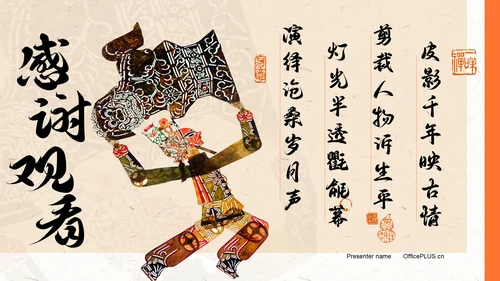 感谢观看
皮影千年映古情
剪裁人物诉生平
灯光半透氍毹幕
演绎沧桑岁月声
Presenter name
OfficePLUS.cn